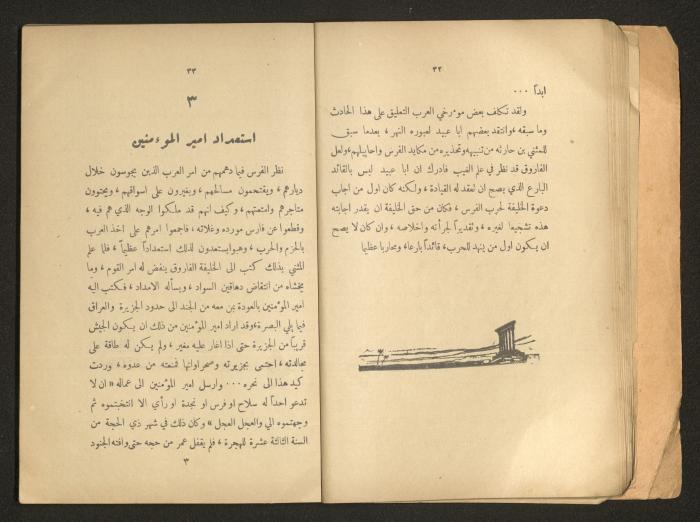 ٣٢
ابداً ...
ولقد تكلف بعض مؤرخي العرب التعليق على هذا الحادث
وما سبقه ، وانتقد بعضهم ابا عبيد لعبوره النهر ، بعدما سبق
للمثنى بن حارثه من تنبيهه وتحذيره من مكايد الفرس واحابيلهم ، ولعل
الفاروق قد نظر في علم الغيب فادرك ان ابا عبيد ليس بالقائد
البارع الذي يصح ان تعقد له القيادة ، ولكنه كان اول من اجاب
دعوة الخليفة لحرب الفرس ، فكان من حق الخليفة ان يقدر اجابته
هذه تشجيعاً لغيره ، وتقديراً لجرأته واخلاصه ، وان كان لا يصح
ان يكون اول من ينهد للحرب ، قائداً بارعاً ، ومحارباً عظيما
٣٣
٣
استعداد امير الموءمنين
نظر الفرس فيما دهمهم من امر العرب الذين يجوسون خلال
ديارهم ، ويقتحمون مسالحهم ، ويغيرون على اسواقهم ، ويحتوون
متاجرهم وامتعتهم ، وكيف انهم قد ملكوا الوجه الذي هم فيه ،
وقطعوا عن فارس مورده وغلاته ، فاجمعوا امرهم على اخذ العرب
بالحزم والحرب ، وهبوا يستعدون لذلك استعداداً عظيماً ، فلما علم
المثنى بذلك كتب الى الخليفة الفاروق ينفض له امر القوم ، وما
يخشاه من انتقاض دهاقين السواد ، ويسأله الامداد ، فكتب اليه
امير المؤمنين بالعودة بمن معه من الجند الى حدود الجزيرة والعراق
فيما يلي البصرة ، وقد اراد امير المؤمنين من ذلك ان يكون الجيش
قريباً من الجزيرة حتى اذا اغار عليه مغير ، ولم يكن له طاقة على
مجالدته ، احتمى بجزيرته وصحراواتها فمنعته من عدوه ، وردت
كيد هذا الى نحره ... وارسل امير المؤمنين الى عماله « ان لا
تدعو احداً له سلاح او فرس او نجدة او رأي الا انتخبتموه ثم
وجهتموه الي والعجل العجل » وكان ذلك في شهر ذي الحجة من
السنة الثالثة عشرة للهجرة ، فلم يقفل عمر من حجه حتى وافته الجنود
٣